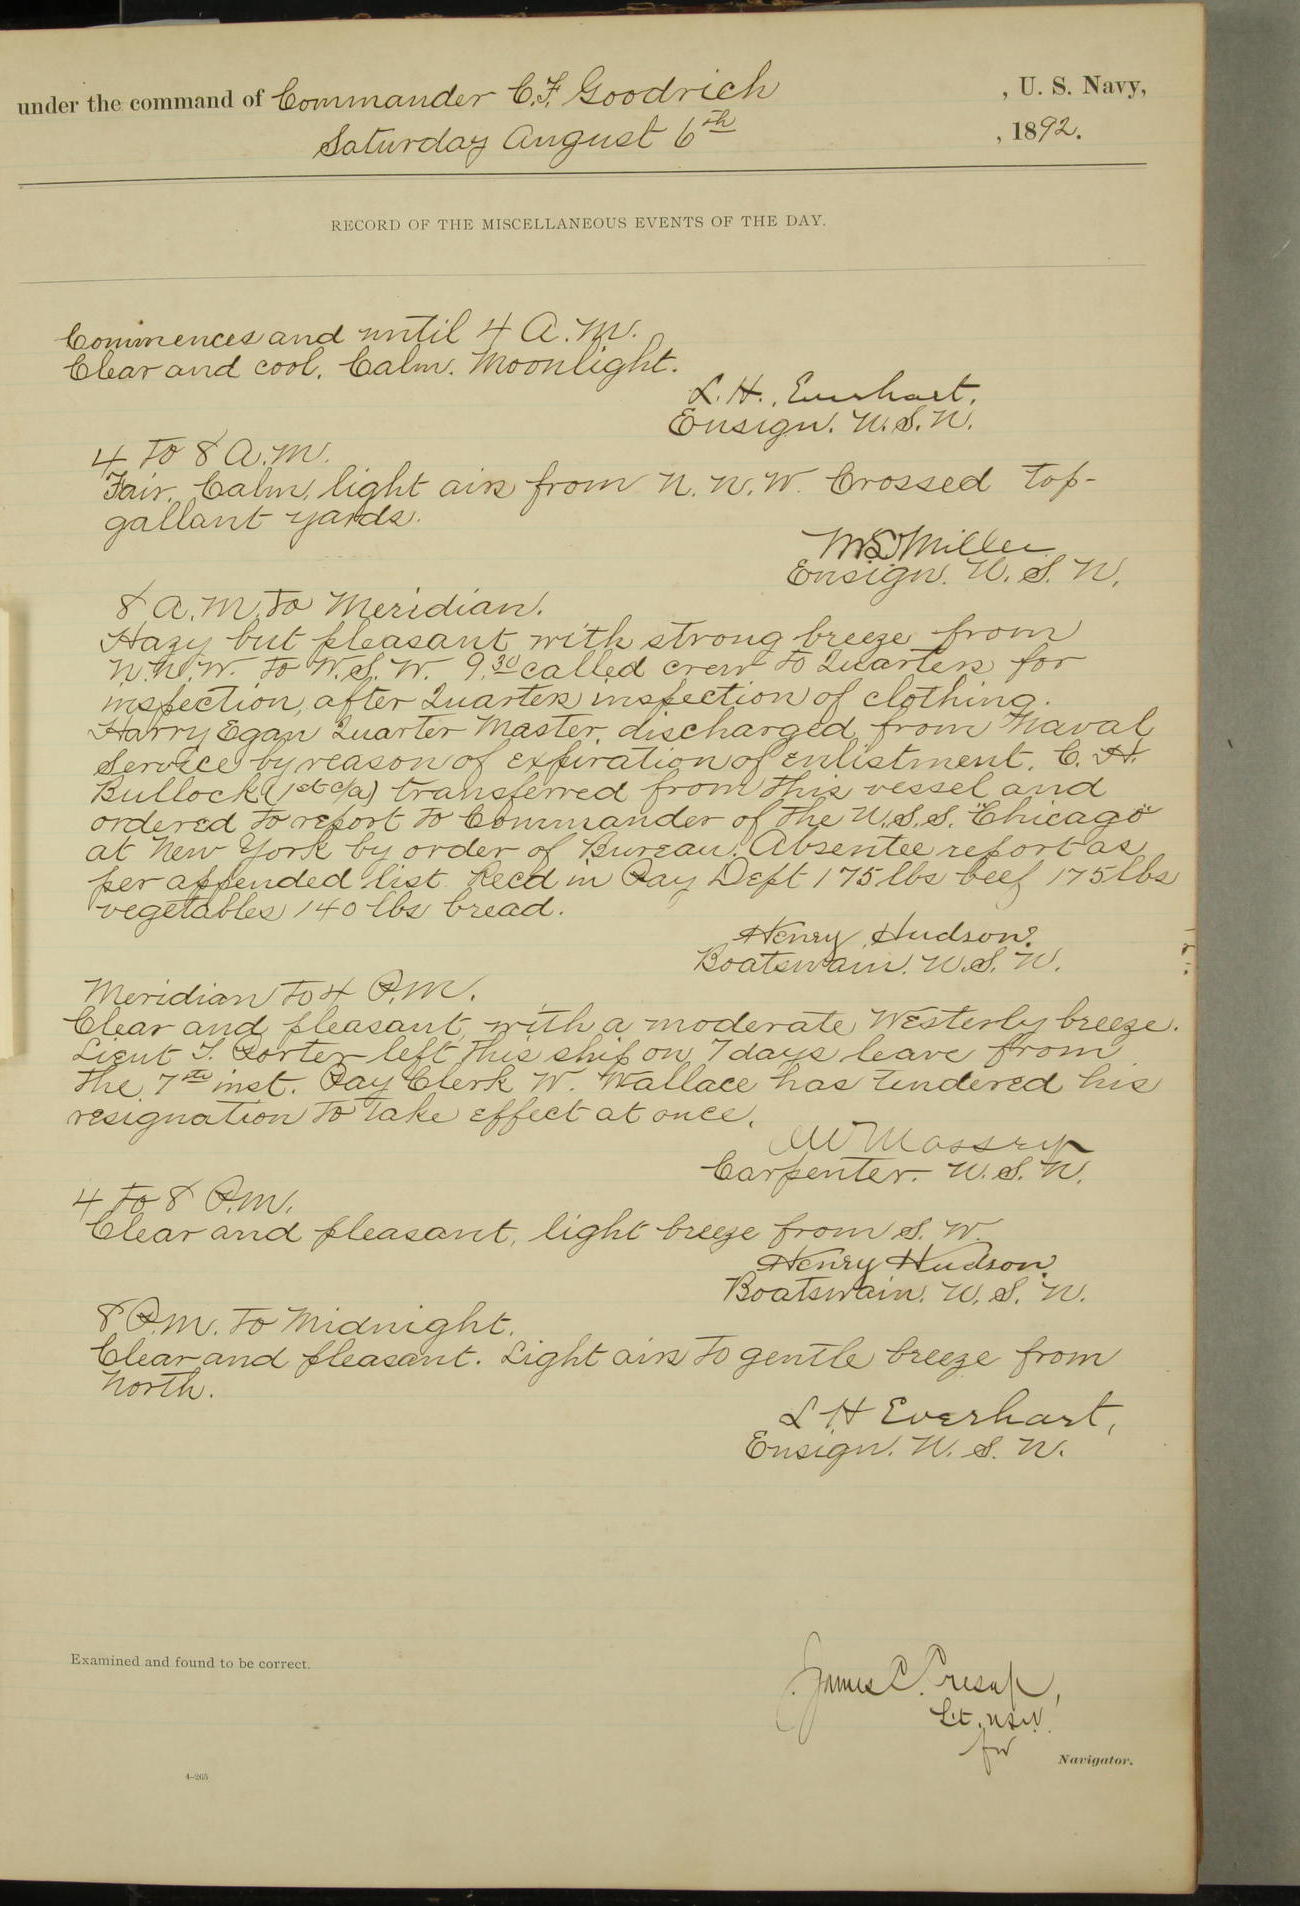 under the command of Commander C.F. Goodrich , U. S. Navy,
Saturday August 6th , 1892.
RECORD OF THE MISCELLANEOUS EVENTS OF THE DAY.
Commences and until 4 A.M.
Clear and cool. Calm. Moonlight.
L. H. Everhart.
Ensign. U.S.N.
4 to 8 A.M.
Fair. Calm, light airs from N.N.W. Crossed top-
gallant yards.
M S Miller
Ensign. U. S. N.
8 A.M. to Meridian.
Hazy but pleasant with strong breeze from
N.N.W. to W.S.W. 9.30 called crew to Quarters for
inspection, after Quarters inspection of clothing.
Harry Egan Quarter Master, discharged from Naval
Service by reason of expiration of enlistment. C. H.
Bullock (1st c/a) transferred from this vessel and
ordered to report to Commander of the U.S.S. "Chicago"
at New York by order of Bureau. Absentee report as
per appended list. Recd in Pay Dept 175 lbs beef 175 lbs
vegetables 140 lbs bread.
Henry Hudson.
Boatswain. U.S. N.
Meridian to 4 P.M.
Clear and pleasant, with a moderate Westerly breeze.
Lieut T. Porter left this ship on 7 days leave from
the 7th inst. Pay Clerk W. Wallace has tendered his
resignation to take effect at once.
Carpenter. U.S. N.
4 to 8 P.M.
Clear and pleasant, light breeze from S. W.
Henry Hudson.
Boatswain. U. S. N.
8 P.M. to Midnight.
Clear and pleasant. Light airs to gentle breeze from
North.
L H Everhart,
Ensign. U. S. N.
Examined and found to be correct.
James C. Cresap,
Lt. USN.
for
Navigator.
4–265